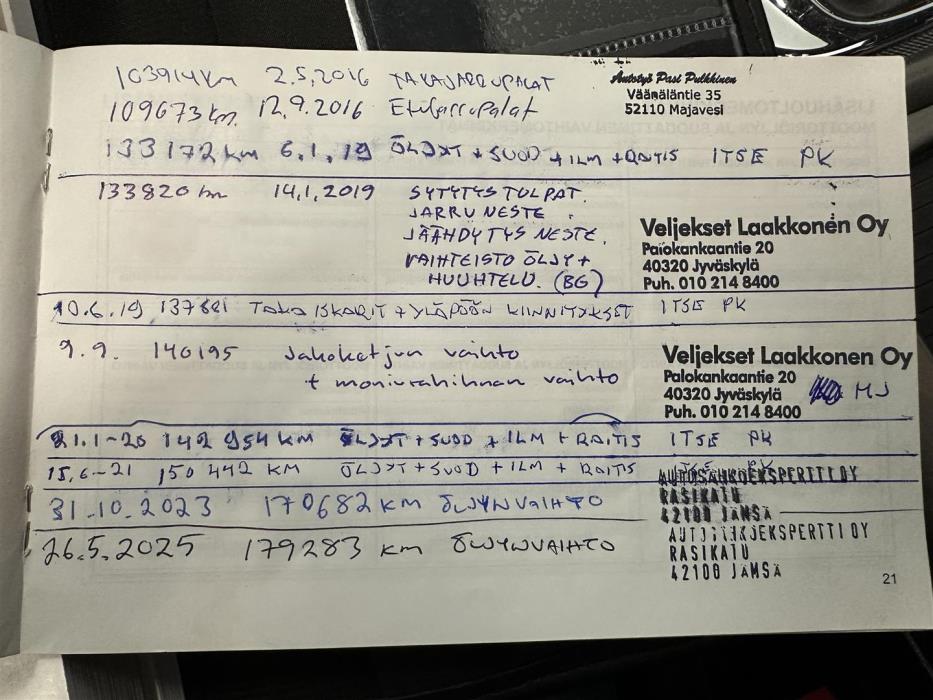 103914 km 2.5.2016 TAKAJARRUPALAT
Autotyö Pasi Pulkkinen
Väänäläntie 35
52110 Majavesi
109673 km. 12.9.2016 Etujarrupalat
133 172 km 6.1.19 ÖLJYT + SUOD + ILM + RAITIS ITSE PK
133820 km 14.1.2019 SYTYTYSTULPAT.
JARRUNESTE.
JÄÄHDYTYSNESTE.
VAIHTEISTO ÖLJY +
HUUHTELU. (BG)
Veljekset Laakkonen Oy
Palokankaantie 20
40320 Jyväskylä
Puh. 010 214 8400
10.6.19 137681 TAKA ISKARIT + YLÄPÄÄN KIINNITYKSET ITSE PK
9.9. 140195 Jakoketjun vaihto
+ moniurahihnan vaihto
Veljekset Laakkonen Oy
Palokankaantie 20
40320 Jyväskylä MJ
Puh. 010 214 8400
21.1-20 142 954 KM ÖLJYT + SUOD + ILM + RAITIS ITSE PK
15.6-21 150 442 KM ÖLJYT + SUOD + ILM + RAITIS ITSE PK
31.10.2023 170682 KM ÖLJYNVAIHTO
AUTOSÄHKÖEKSPERTTI OY
RASIKATU
42100 JÄMSÄ
26.5.2025 179283 km ÖLJYNVAIHTO
AUTOSÄHKÖEKSPERTTI OY
RASIKATU
42100 JÄMSÄ
21